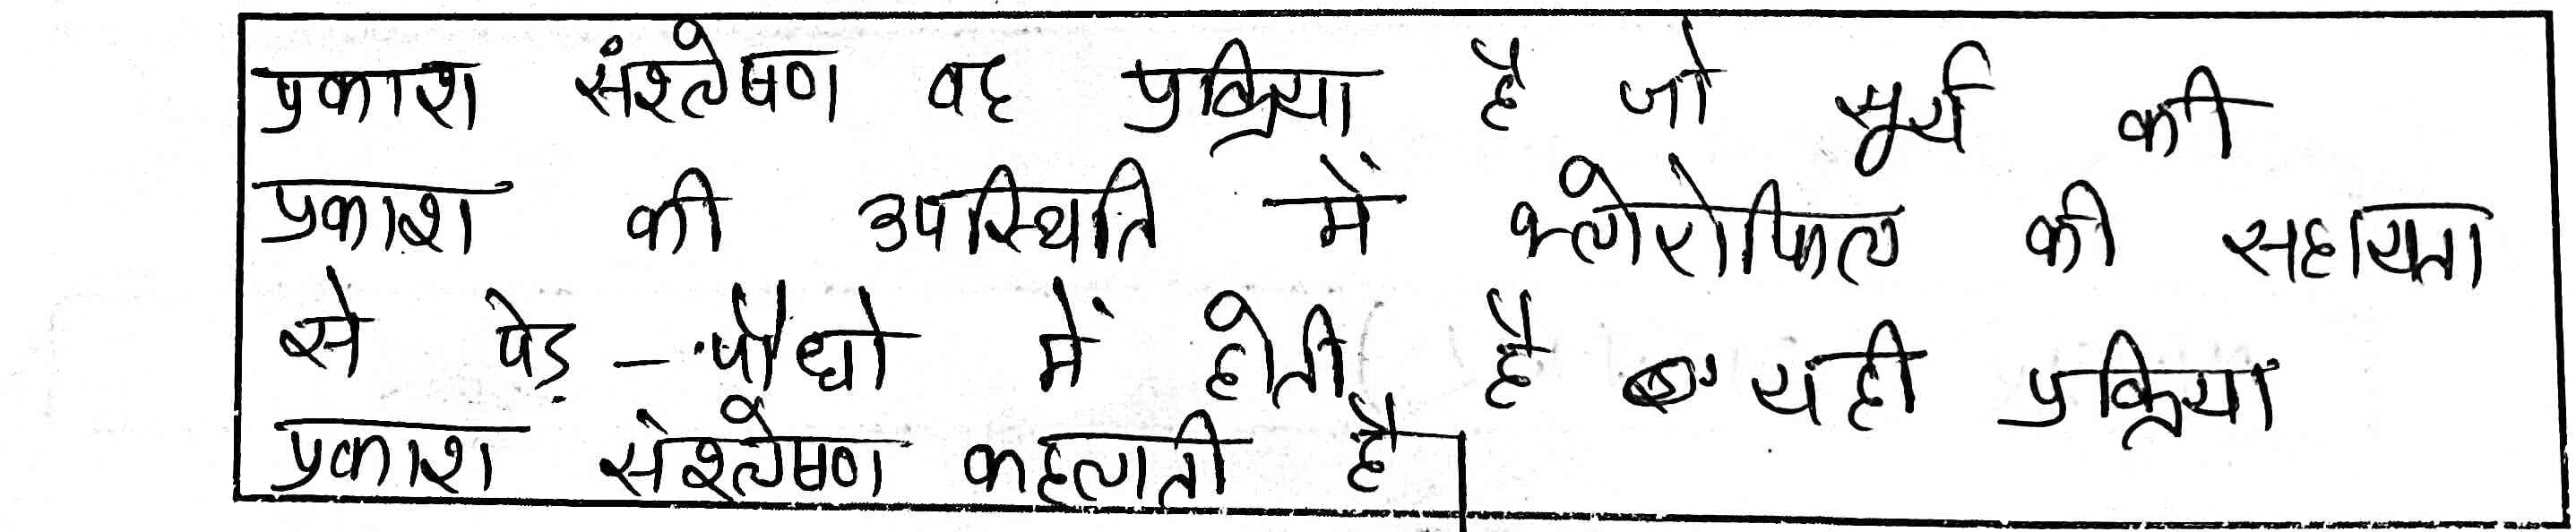 प्रकाश संश्लेषण वह प्रक्रिया है जो सूर्य की
प्रकाश की उपस्थिति में क्लोरोफिल की सहायता
से पेड़ - पौधो में होती है यही प्रक्रिया
प्रकाश संश्लेषण कहलाती है।